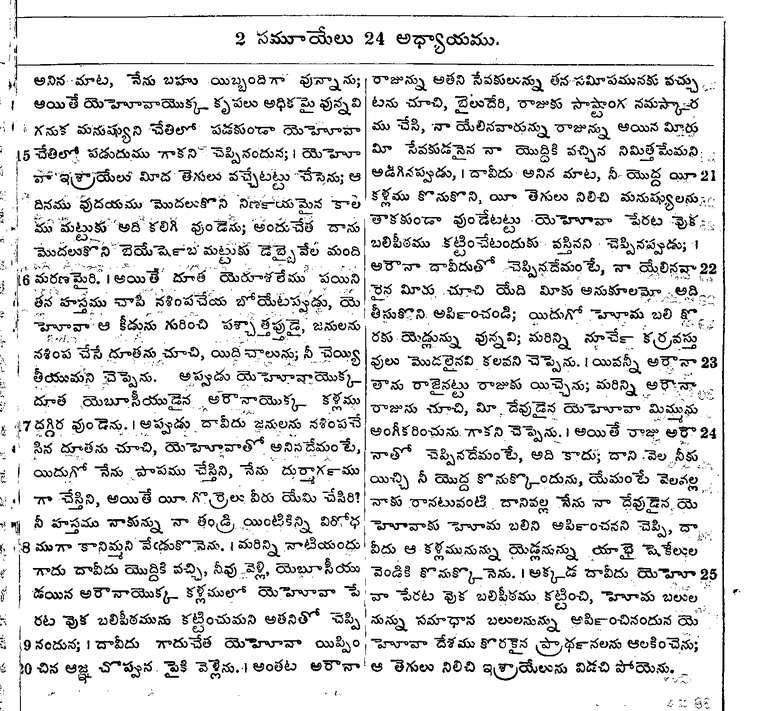 2 సమూయేలు 24 అధ్యాయము.
అనిన మాట, నేను బహు యిబ్బందిగా వున్నాను;
అయితే యెహోవాయొక్క కృపలు అధికమై వున్నవి
గనుక మనుష్యుని చేతిలో పడకుండా యెహోవా
15 చేతిలో పడుదుము గాకని చెప్పినందున; । యెహో
వా ఇశ్రాయేలు మీద తెగులు వచ్చేటట్టు చేసెను; ఆ
దినము వుదయము మొదలుకొని నిర్ణయమైన కాల
ము మట్టుకు అది కలిగి వుండెను; అందుచేత దాను
మొదలుకొని బెయేర్షెబా మట్టుకు డెబ్బైవేల మంది
16 మరణమైరి. । అయితే దూత యెరూశలేము పయిని
తన హస్తము చాపి నశింపచేయ బోయేటప్పుడు, యె
హోవా ఆ కీడును గురించి పశ్చాత్తప్తుడై, జనులను
నశింప చేసే దూతను చూచి, యిది చాలును; నీ చెయ్యి
తీయుమని చెప్పెను. అప్పుడు యెహోవాయొక్క
దూత యెబూసీయుడైన అరౌనాయొక్క కళ్లము
17 దగ్గిర వుండెను. । అప్పుడు దావీదు జనులను నశింపచే
సిన దూతను చూచి, యెహోవాతో అనినదేమంటే,
యిదుగో నేను పాపము చేస్తిని, నేను దుర్మార్గము
గా చేస్తిని, అయితే యీ గొర్రెలు వీరు యేమి చేసిరి?
నీ హస్తము నాకున్ను నా తండ్రి యింటికిన్ని విరోధ
18 ముగా కానిమ్మని వేడుకొనెను. । మరిన్ని నాటియందు
గాదు దావీదు యొద్దికి వచ్చి, నీవు వెళ్లి, యెబూసీయు
డయిన అరౌనాయొక్క కళ్లములో యెహోవా పే
రట వొక బలిపీఠమును కట్టించుమని అతనితో చెప్పి
19 నందున; । దావీదు గాదుచేత యెహోవా యిప్పిం
20 చిన ఆజ్ఞ చొప్పున పైకి వెళ్లెను. । అంతట అరౌనా
రాజున్ను అతని సేవకులున్ను తన సమీపమునకు వచ్చు
టను చూచి, బైలుదేరి, రాజుకు సాష్టాంగ నమస్కార
ము చేసి, నా యేలినవారున్ను రాజున్ను అయిన మీరు
మీ సేవకుడనైన నా యొద్దికి వచ్చిన నిమిత్తమేమని
అడిగినప్పుడు, । దావీదు అనిన మాట, నీ యొద్ద యీ 21
కళ్లము కొనుకొని, యీ తెగులు నిలిచి మనుష్యులను
తాకకుండా వుండేటట్టు యెహోవా పేరట వొక
బలిపీఠము కట్టించేటందుకు వస్తినని చెప్పినప్పుడు; ।
అరౌనా దావీదుతో చెప్పినదేమంటే, నా యేలినవా 22
రైన మీరు చూచి యేది మీకు అనుకూలమో అది
తీసుకొని అర్పించండి; యిదుగో హోమ బలి కొ
రకు యెడ్లున్ను వున్నవి; మరిన్ని నూర్చే కర్రవస్తు
వులు మొదలైనవి కలవని చెప్పెను. । యివన్నీ అరౌనా 23
తాను రాజైనట్టు రాజుకు యిచ్చెను; మరిన్ని అరౌనా
రాజును చూచి, మీ దేవుడైన యెహోవా మిమ్మును
అంగీకరించును గాకని చెప్పెను. । అయితే రాజు అరౌ 24
నాతో చెప్పినదేమంటే, అది కాదు; దాని వెల నీకు
యిచ్చి నీ యొద్ద కొనుక్కొందును, యేమంటే వెలవల్ల
నాకు రానటువంటి దానివల్ల నేను నా దేవుడైన యె
హోవాకు హోమ బలిని అర్పించనని చెప్పి, దా
వీదు ఆ కళ్లమునున్ను యెడ్లనున్ను యాభై షెకేలుల
వెండికి కొనుక్కొనెను. । అక్కడ దావీదు యెహో 25
వా పేరట వొక బలిపీఠము కట్టించి, హోమ బలుల
నున్ను సమాధాన బలులనున్ను అర్పించినందున యె
హోవా దేశము కొరకైన ప్రార్థనలను ఆలకించెను;
ఆ తెగులు నిలిచి ఇశ్రాయేలును విడచి పోయెను.